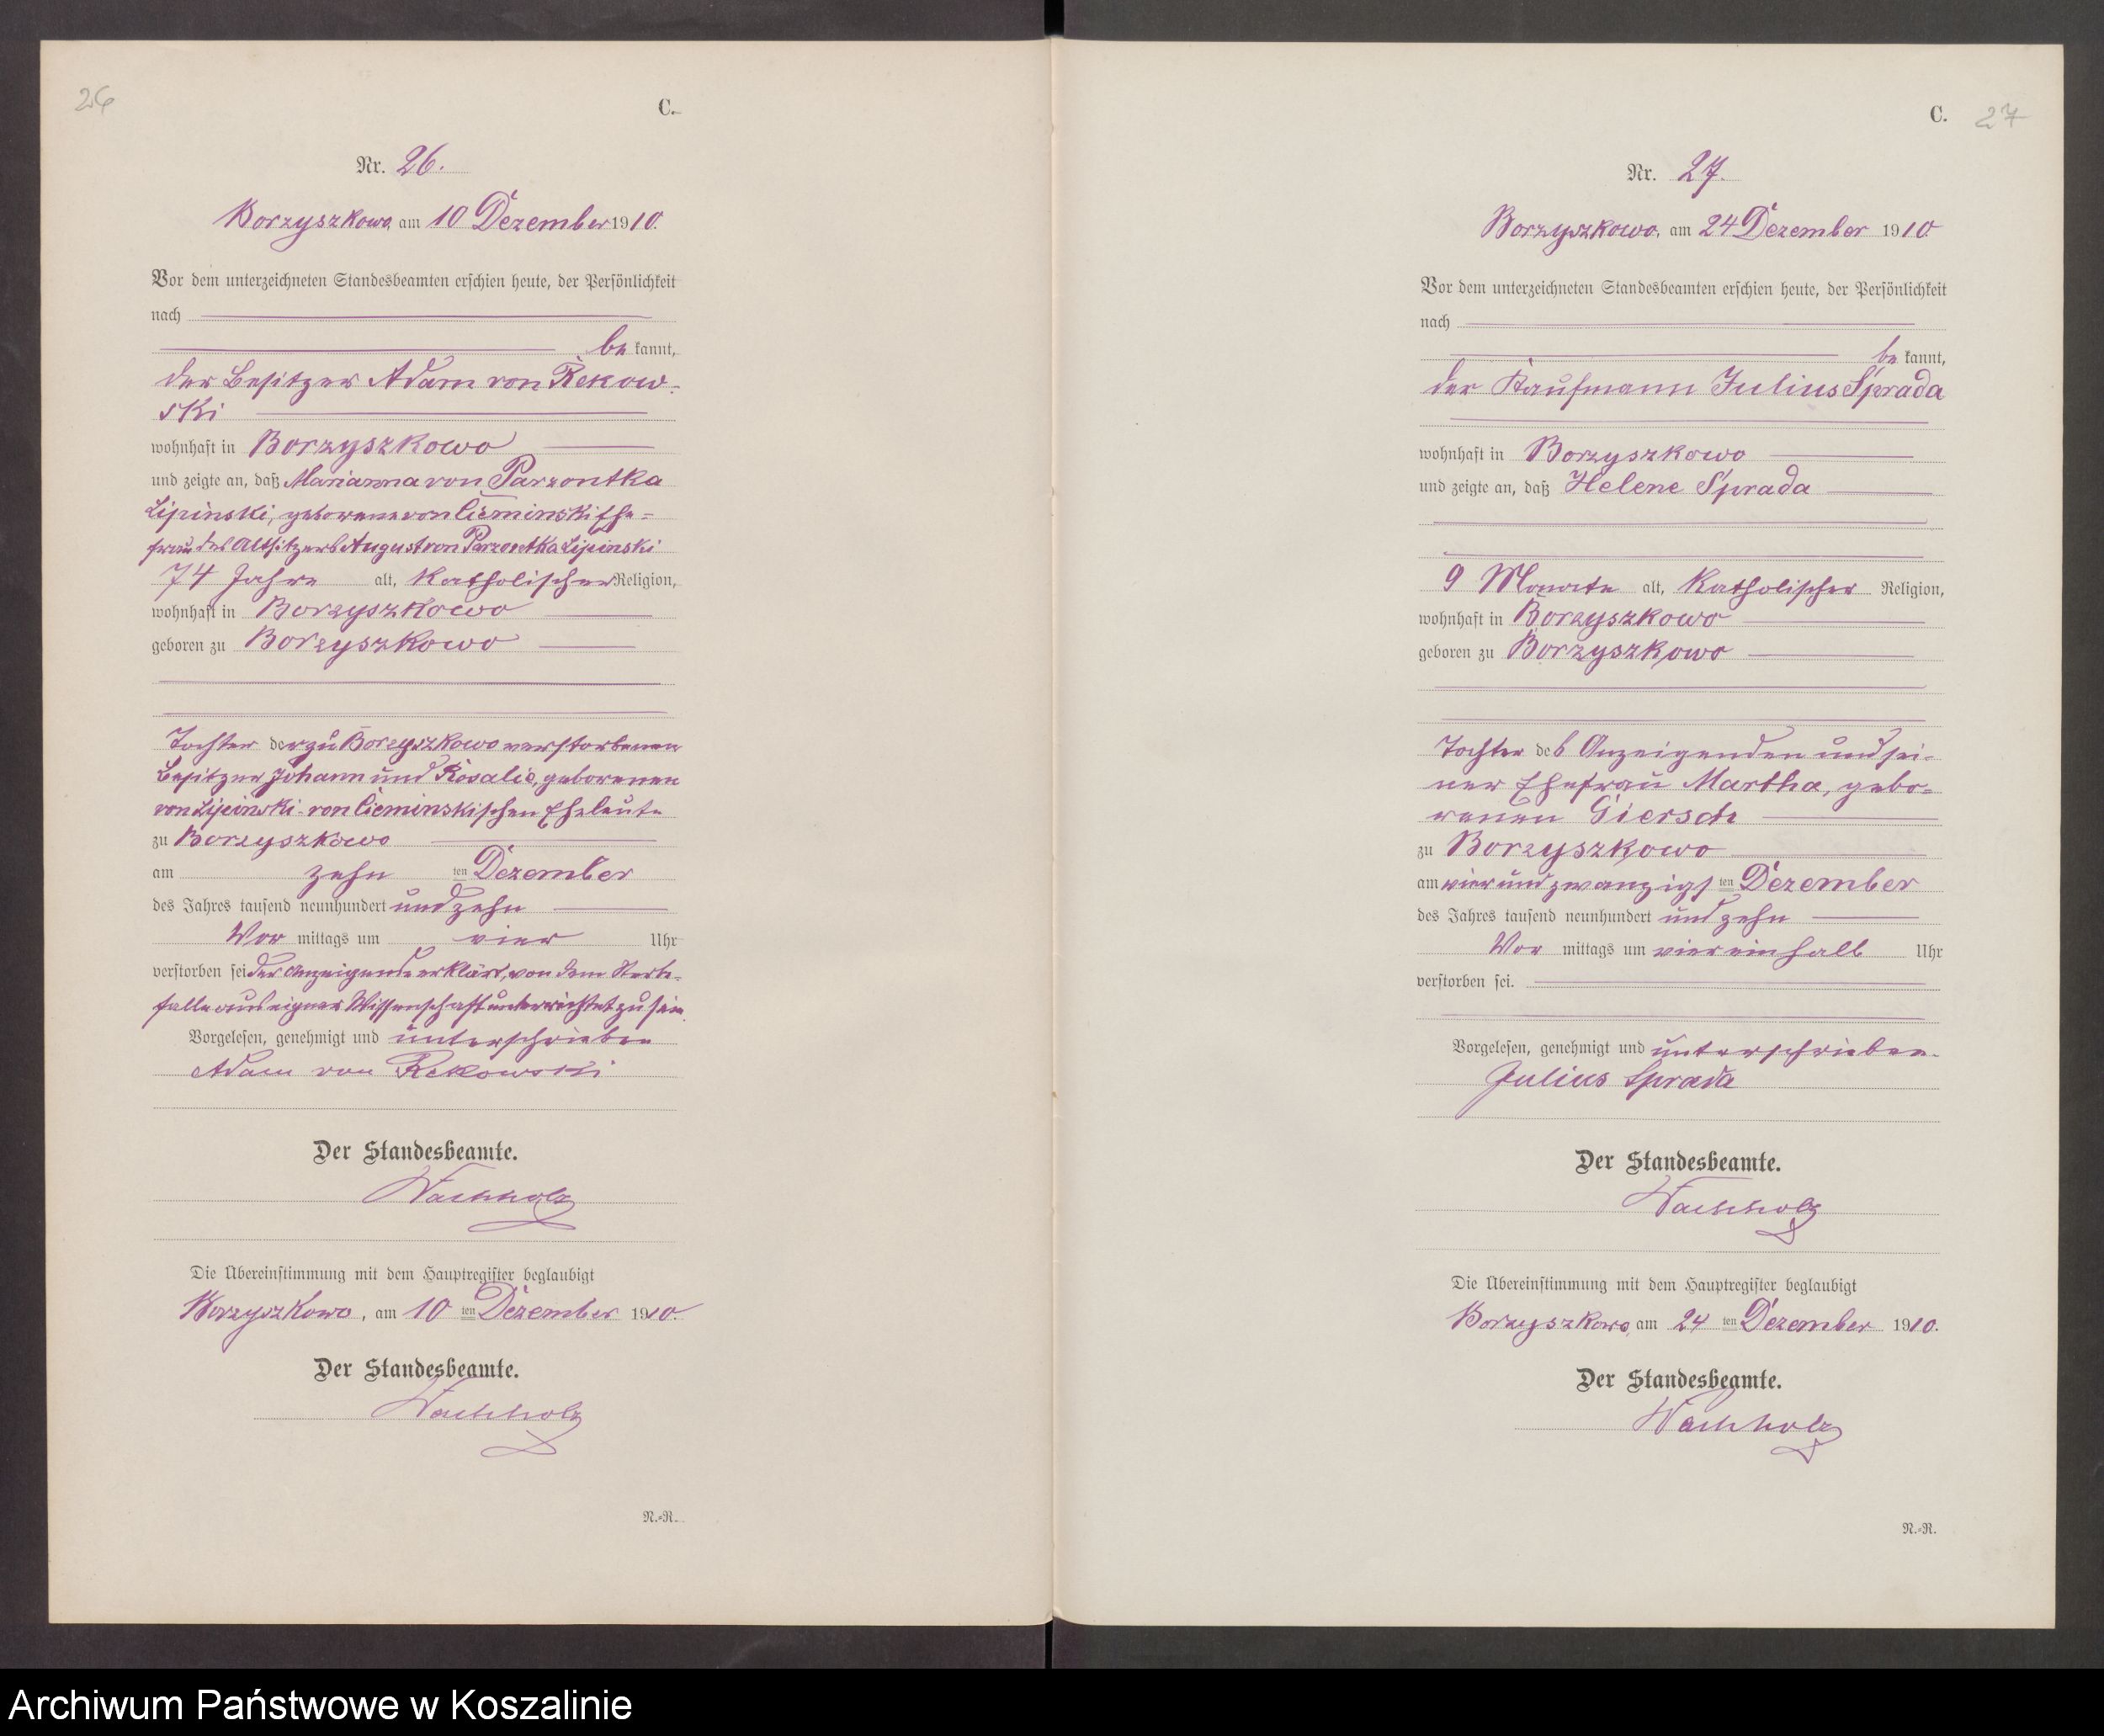 26
C.
Nr. 26.
Borzyszkowo, am 10 Dezember 1910.
Vor dem unterzeichneten Standesbeamten erschien heute, der Persönlichkeit
nach
bekannt,
der Besitzer Adam von Rekow-
ski
wohnhaft in Borzyszkowo
und zeigte an, daß Marianna von Parzontka
Lipinski, geborene von Cieminski Ehe-
frau des Altsitzers August von Parzontka Lipinski
74 Jahre alt, katholischer Religion,
wohnhaft in Borzyszkowo
geboren zu Borzyszkowo
Tochter der zu Borzyszkowo verstorbenen
Besitzer Johann und Rosalie, geborenen
von Lipinski-von Cieminskischen Eheleute
zu Borzyszkowo
am zehn ten Dezember
des Jahres tausend neunhundert und zehn
Vor mittags um vier Uhr
verstorben sei der Anzeigende erklärt, von dem Sterbe-
falle aus eigner Wissenschaft unterrichtet zu sein.
Vorgelesen, genehmigt und unterschrieben
Adam von Rekowski
Der Standesbeamte.
Wachholz
Die Übereinstimmung mit dem Hauptregister beglaubigt
Borzyszkowo, am 10 ten Dezember 1910.
Der Standesbeamte.
Wachholz
N.-R.
C. 27
Nr. 27.
Borzyszkowo, am 24 Dezember 1910
Vor dem unterzeichneten Standesbeamten erschien heute, der Persönlichkeit
nach
bekannt,
der Kaufmann Julius Sprada
wohnhaft in Borzyszkowo
und zeigte an, daß Helene Sprada
9 Monate alt, katholischer Religion,
wohnhaft in Borzyszkowo
geboren zu Borzyszkowo
Tochter des Anzeigenden und sei-
ner Ehefrau Martha, gebo-
renen Giersch
zu Borzyszkowo
am vier und zwanzigs ten Dezember
des Jahres tausend neunhundert und zehn
Vor mittags um viereinhalb Uhr
verstorben sei.
Vorgelesen, genehmigt und unterschrieben.
Julius Sprada
Der Standesbeamte.
Wachholz
Die Übereinstimmung mit dem Hauptregister beglaubigt
Borzyszkowo, am 24 ten Dezember 1910.
Der Standesbeamte.
Wachholz
N.-R.
Archiwum Państwowe w Koszalinie